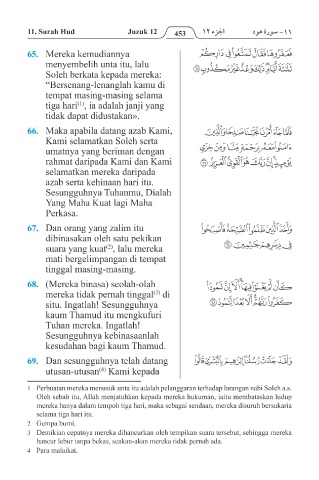 11. Surah Hud Juzuk 12 453 الجزء ١٢ ١١- سورة هود
65. Mereka kemudiannya
menyembelih unta itu, lalu
Soleh berkata kepada mereka:
“Bersenang-lenanglah kamu di
tempat masing-masing selama
tiga hari(1), ia adalah janji yang
tidak dapat didustakan».
فَعَقَرُوهَا فَقَالَ تَمَتَّعُوا۟ فِى دَارِكُمْ
ثَلَـٰثَةَ أَيَّامٍ ۖ ذَٰلِكَ وَعْدٌ غَيْرُ مَكْذُوبٍ ٦٥
66. Maka apabila datang azab Kami,
Kami selamatkan Soleh serta
umatnya yang beriman dengan
rahmat daripada Kami dan Kami
selamatkan mereka daripada
azab serta kehinaan hari itu.
Sesungguhnya Tuhanmu, Dialah
Yang Maha Kuat lagi Maha
Perkasa.
فَلَمَّا جَآءَ أَمْرُنَا نَجَّيْنَا صَـٰلِحًا وَٱلَّذِينَ
ءَامَنُوا۟ مَعَهُۥ بِرَحْمَةٍ مِّنَّا وَمِنْ خِزْىِ
يَوْمِئِذٍ ۗ إِنَّ رَبَّكَ هُوَ ٱلْقَوِىُّ ٱلْعَزِيزُ ٦٦
67. Dan orang yang zalim itu
dibinasakan oleh satu pekikan
suara yang kuat(2), lalu mereka
mati bergelimpangan di tempat
tinggal masing-masing.
وَأَخَذَ ٱلَّذِينَ ظَلَمُوا۟ ٱلصَّيْحَةُ فَأَصْبَحُوا۟
فِى دِيَـٰرِهِمْ جَـٰثِمِينَ ٦٧
68. (Mereka binasa) seolah-olah
mereka tidak pernah tinggal(3) di
situ. Ingatlah! Sesungguhnya
kaum Thamud itu mengkufuri
Tuhan mereka. Ingatlah!
Sesungguhnya kebinasaanlah
kesudahan bagi kaum Thamud.
كَأَن لَّمْ يَغْنَوْا۟ فِيهَآ ۗ أَلَآ إِنَّ ثَمُودَا۟
كَفَرُوا۟ رَبَّهُمْ ۗ أَلَا بُعْدًا لِّثَمُودَ ٦٨
69. Dan sesungguhnya telah datang
utusan-utusan(4) Kami kepada
وَلَقَدْ جَآءَتْ رُسُلُنَآ إِبْرَٰهِيمَ بِٱلْبُشْرَىٰ قَالُوا۟
1 Perbuatan mereka menusuk unta itu adalah pelanggaran terhadap larangan nabi Soleh a.s.
Oleh sebab itu, Allah menjatuhkan kepada mereka hukuman, iaitu membataskan hidup
mereka hanya dalam tempoh tiga hari, maka sebagai sendaan, mereka disuruh bersukaria
selama tiga hari itu.
2 Gempa bumi.
3 Demikian cepatnya mereka dihancurkan oleh tempikan suara tersebut, sehingga mereka
hancur lebur tanpa bekas, seakan-akan mereka tidak pernah ada.
4 Para malaikat.